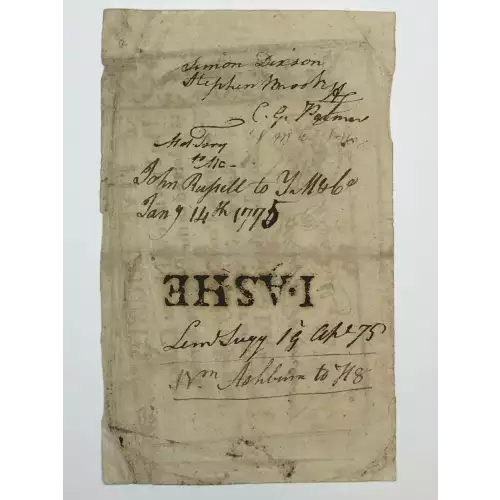 Simon Dixson
Stephen Brooks
C. G. Palmer
to Mc
John Russell to Y M & Co
Jany 14th 1775
I·ASHE
Lemd Sugg 19 Apl 75
Wm Ashburn to H8